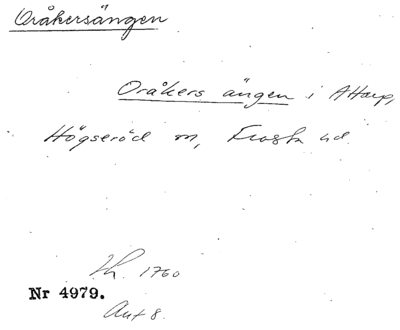 Oråkersängen
Oråkers ängen i Attarp,
Högseröd sn, Frosta hd.
Lh. 1760
Nr 4979.
Akt 8.